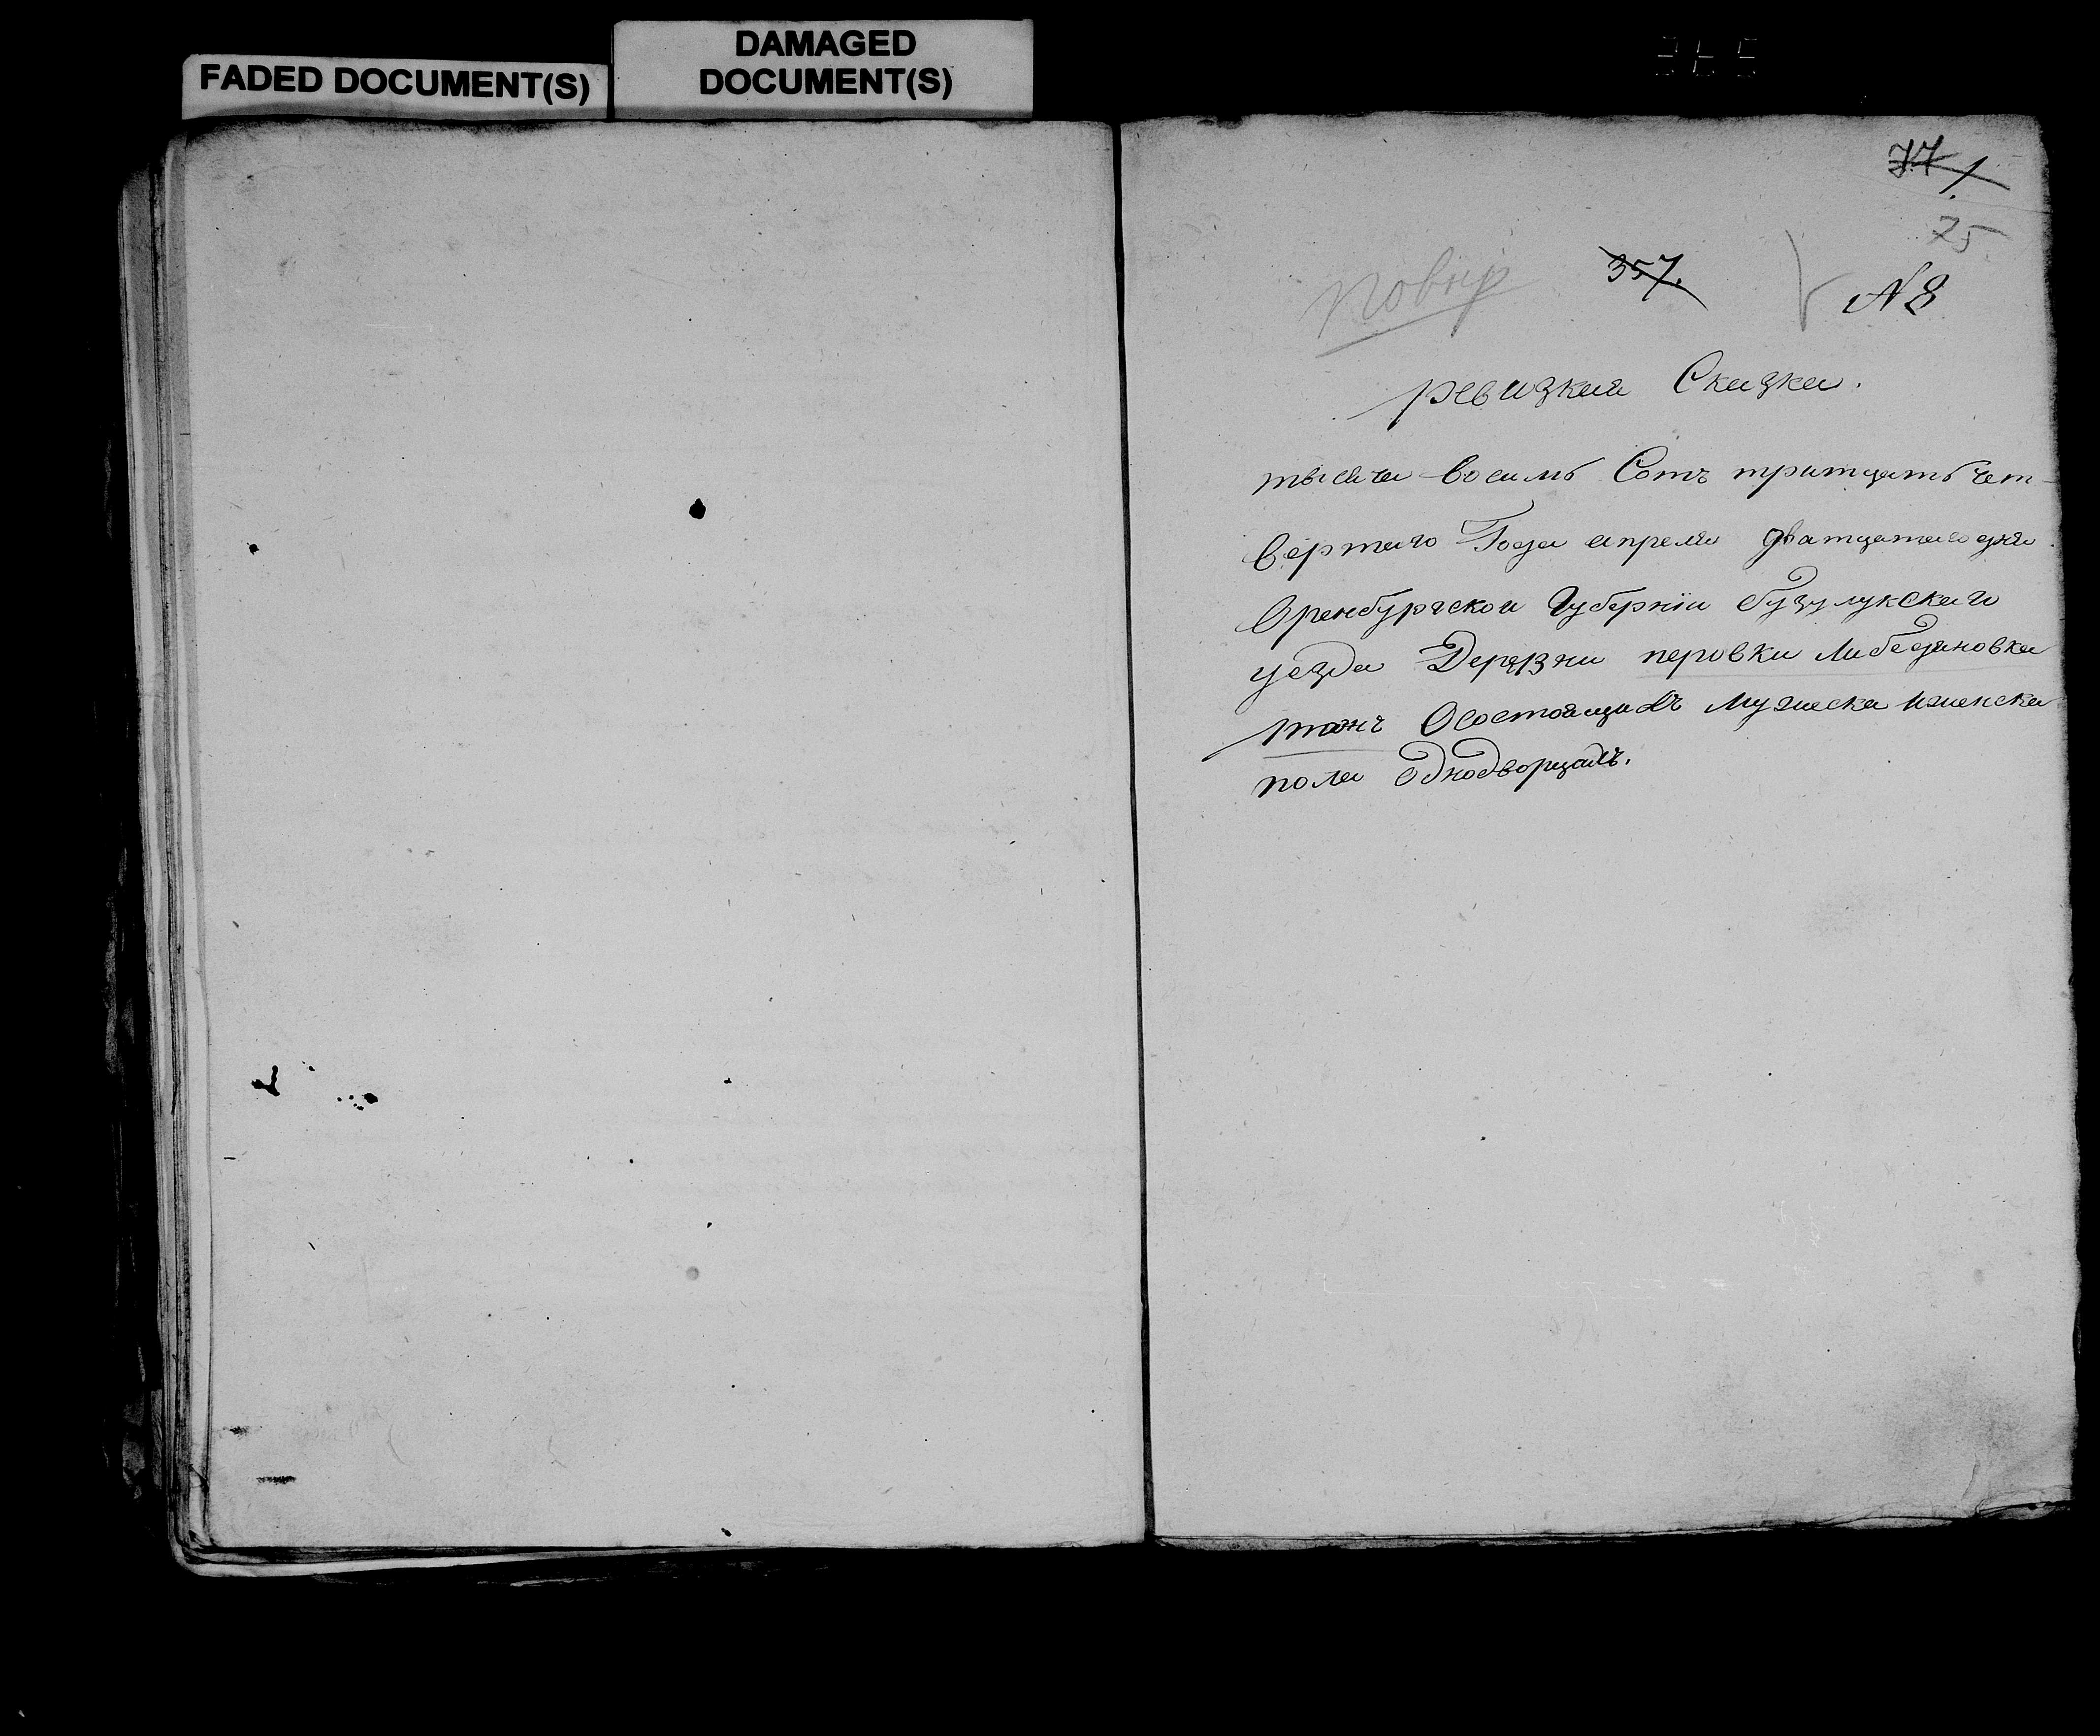 FADED DOCUMENT(S)
DAMAGED
DOCUMENT(S)
365
77
1
75
повер
357.
N 8
ревизкая Сказка.
тысеча восимь Сотъ тритцать чет-
вертаго Года апреля дватцатаго дня
Оренбургской Губерніи бузулукскаго
уезда Деревни перовки либедяновка
тожъ О состоящихъ мужеска и женска
пола однодворцахъ.